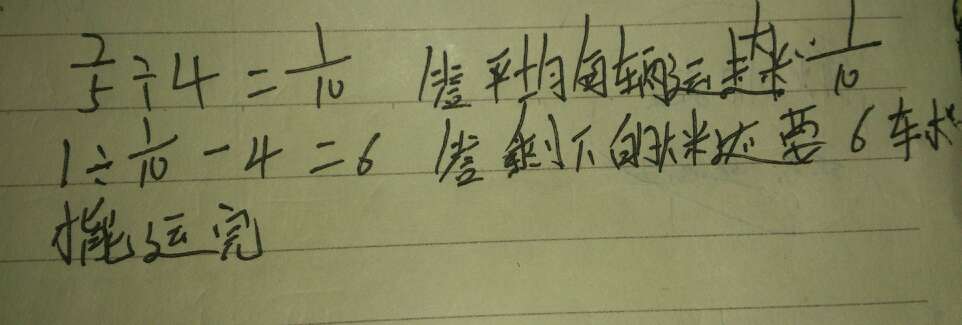 2/5÷4=1/10 答平均每车运走大米1/10
1÷1/10-4=6 答剩下的大米还要6车
才能运完